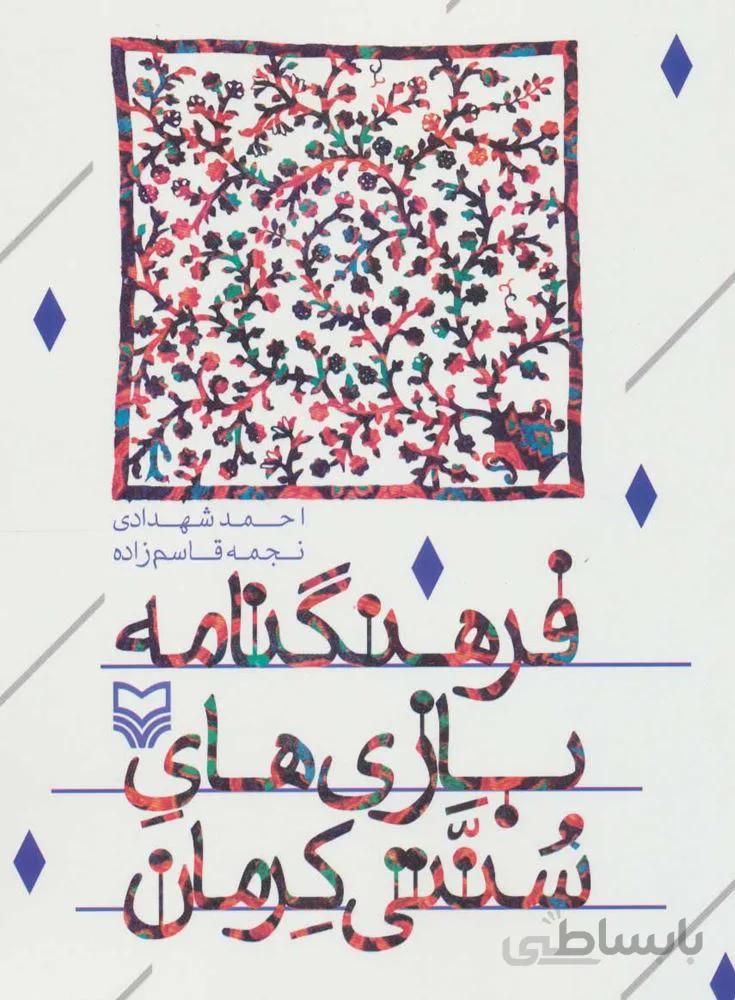 احمد شهدادی
نجمه قاسم‌زاده
فرهنگنامه
بازی‌هایِ
سُنَّتی کِرمان
باسساطی